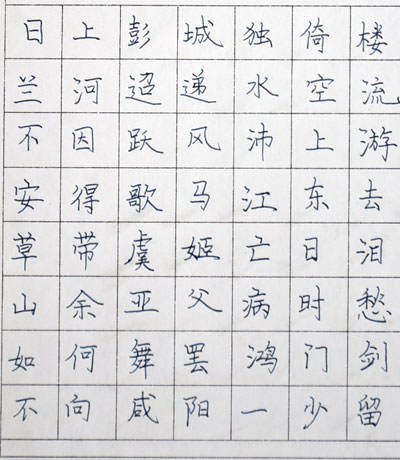 日上彭城独倚楼
兰河迢递水空流
不因跃风沛上游
安得歌马江东去
草带虞姬亡日泪
山余亚父病时愁
如何舞罢鸿门剑
不向咸阳一少留